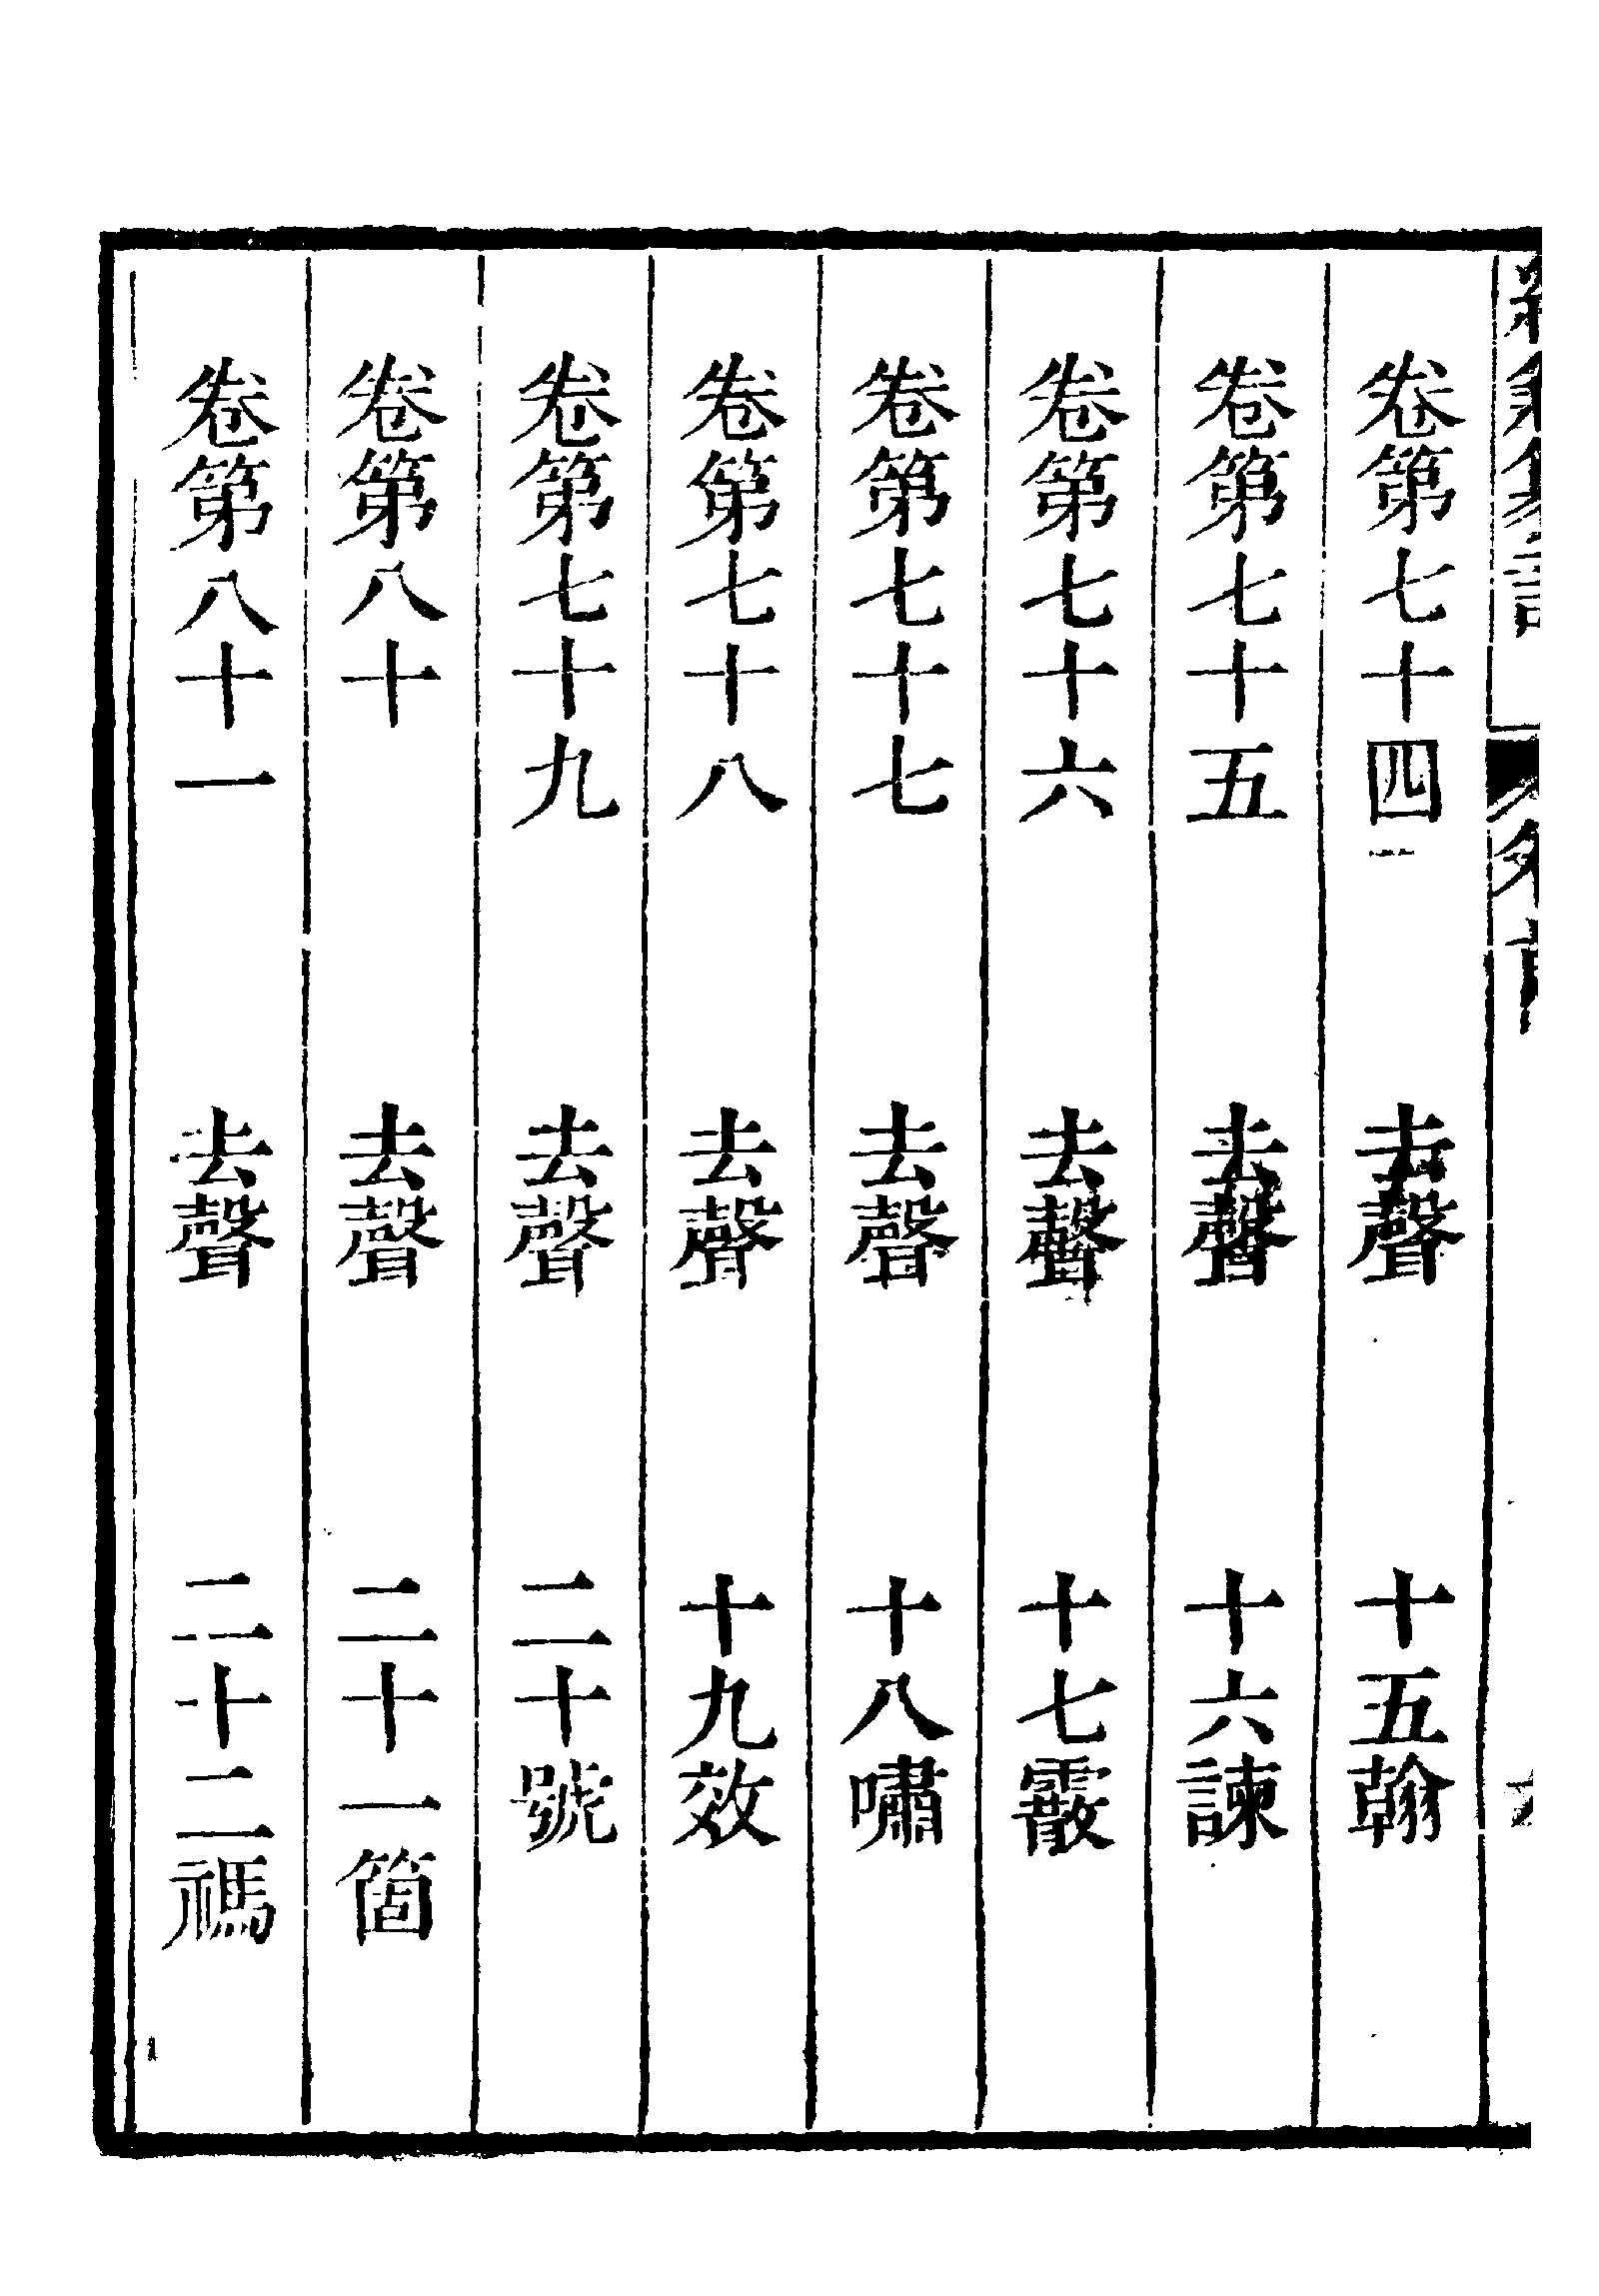 卷第七十四 去聲 十五翰
卷第七十五 去聲 十六諫
卷第七十六 去聲 十七霰
卷第七十七 去聲 十八嘯
卷第七十八 去聲 十九效
卷第七十九 去聲 二十號
卷第八十 去聲 二十一箇
卷第八十一 去聲 二十二禡